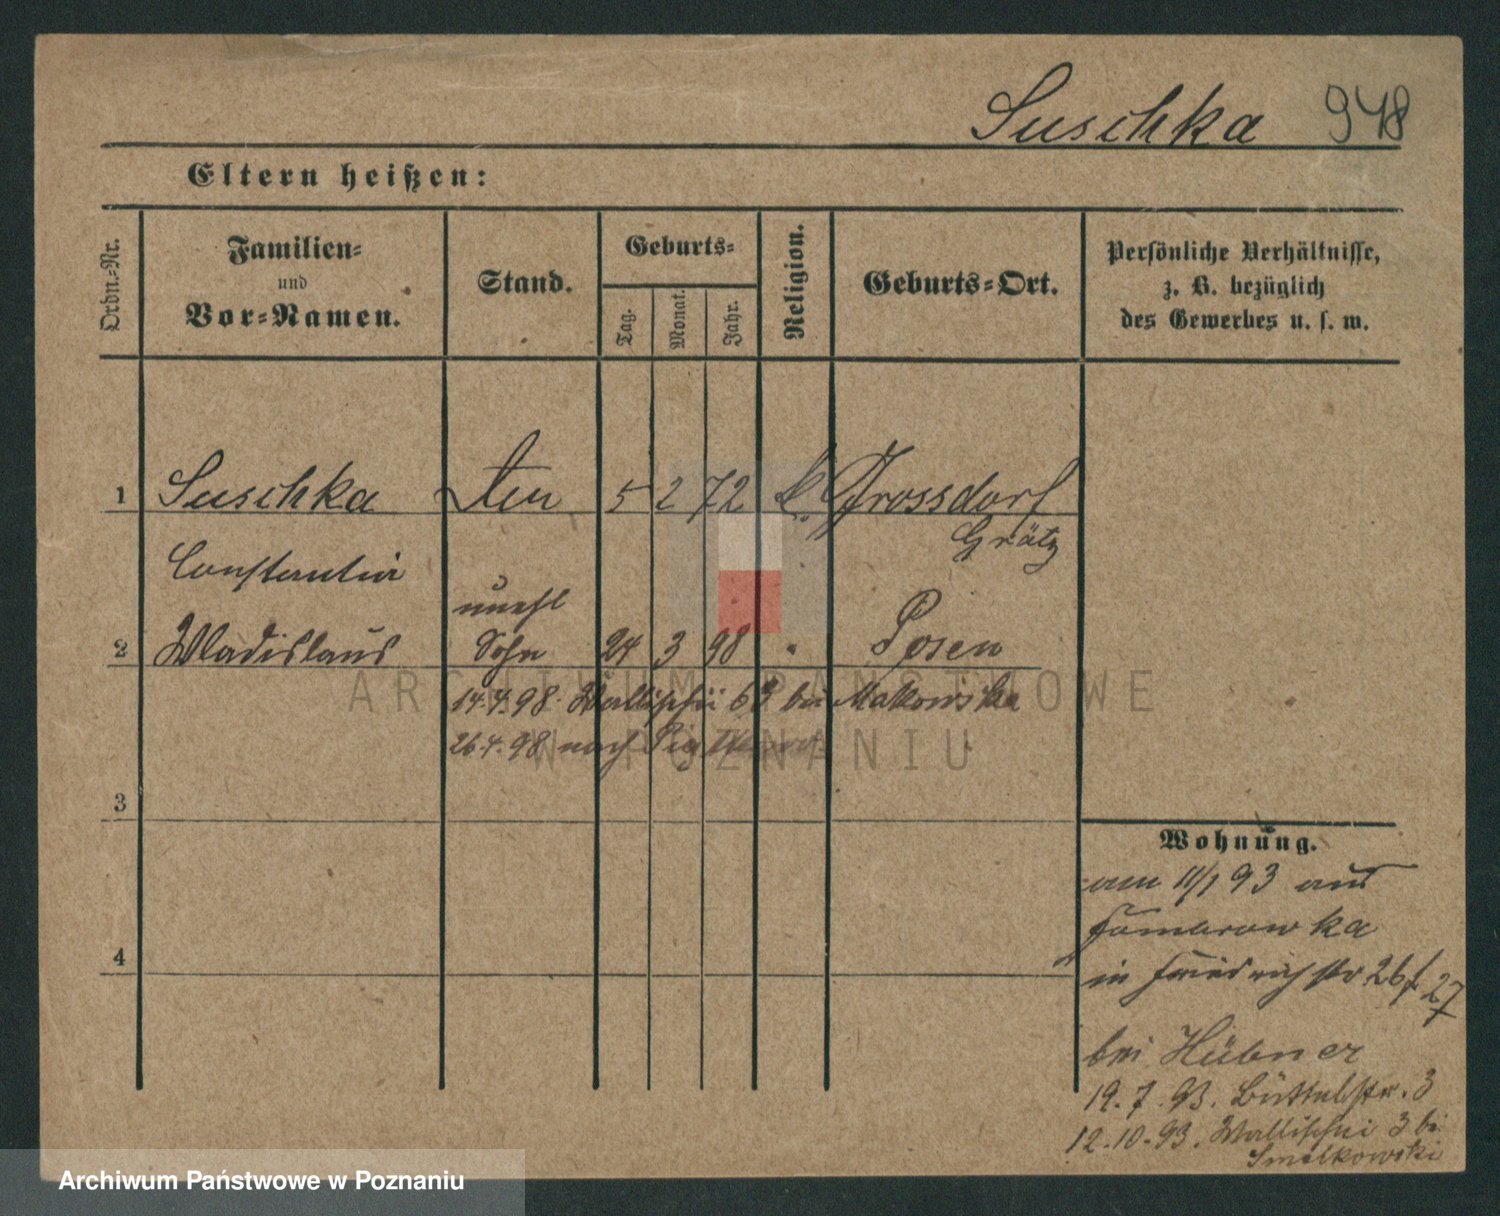 Suschka 948
Eltern heißen:
Ordn.-Nr.
Familien-
und
Vor-Namen.
Stand.
Geburts-
Tag.
Monat.
Jahr.
Religion.
Geburts-Ort.
Persönliche Verhältnisse,
z. B. bezüglich
des Gewerbes u. s. w.
1 Suschka 5 2 72 k. Grossdorf
Grätz
Constantia
unehl
2 Wladislaus Sohn 24 3 98 " Posen
14.4.98. Wallischei 63 bei Makowska
26.4.98 nach
3
4
Wohnung.
am 11/1 93 aus
Dombrowka
in Friedrichstr 26/27
bei Hübner
19.7.93. Büttelstr. 3
12.10.93. Wallischei 3 bei
Smelkowski
ARCHIWUM PAŃSTWOWE
W POZNANIU
Archiwum Państwowe w Poznaniu